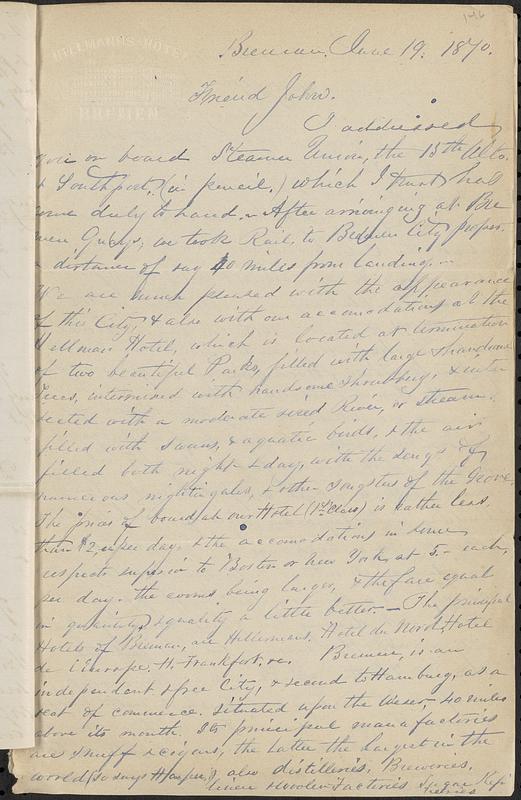 146
HILLMANNS HOTEL
BREMEN
Bremen, June 19. 1870.
Friend John.
I addressed
you on board Steamer Union, the 15th Ulto.
& Southport, (in pencil,) which I trust has
come duly to hand. After arriving at Bre
men Quays, we took Rail, to Bremen City proper,
a distance of say 40 miles from landing.
We are much pleased with the appearance
of this City, & also with our accomodations at the
Hellman Hotel, which is located at termination
of two beautiful Parks, filled with large & handsome
Trees, intermixed with handsome shrubbery, & inter
sected with a moderate sized River, or stream,
filled with swans, & aquatic birds, & the air
filled both night & day, with the songs of
numerous nightingales, & other songsters of the Grove.
The prices of board at our Hotel (1st Class) is rather less
than $2, per day, & the accomodations in some
respects superior to Boston or New York, at 5.- each,
per day. the rooms being larger, & the fare equal
in quantity, & quality a little better. — The principal
Hotels of Bremen, are Hillermans, Hotel du Nord, Hotel
de L'Europe, H. Frankfort, &c. Bremen, is an
independent & free City, & second to Hamburg, as a
seat of commerce. situated upon the Weser, 40 miles
above its mouth. Its principal manufactories
are snuff & cigars, the latter the largest in the
world, (so says Harper,) also distilleries, Breweries,
linen & woolen Factories Sugar Refi
neries